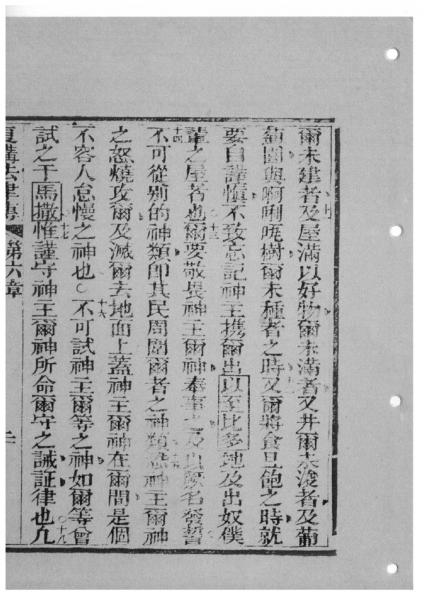 爾未建者及屋滿以好物爾未滿者又井爾未浚者及葡
萄園與啊唎𠯈樹爾未種者之時又爾將食且飽之時就
要自謹慎不致忘記神王攜爾出以至比多地及出奴僕
輩之屋者也爾要敬畏神王爾神奉事之及以厥名發誓
不可從別的神類即其民周圍爾者之神類蓋神王爾神
之怒燒攻爾及滅爾去地面上蓋神王爾神在爾間是個
不容人怠慢之神也○不可試神王爾等之神如爾等曾
試之于馬撒惟謹守神王爾神所命爾守之誡証律也凡
復講法律傳 第六章 二